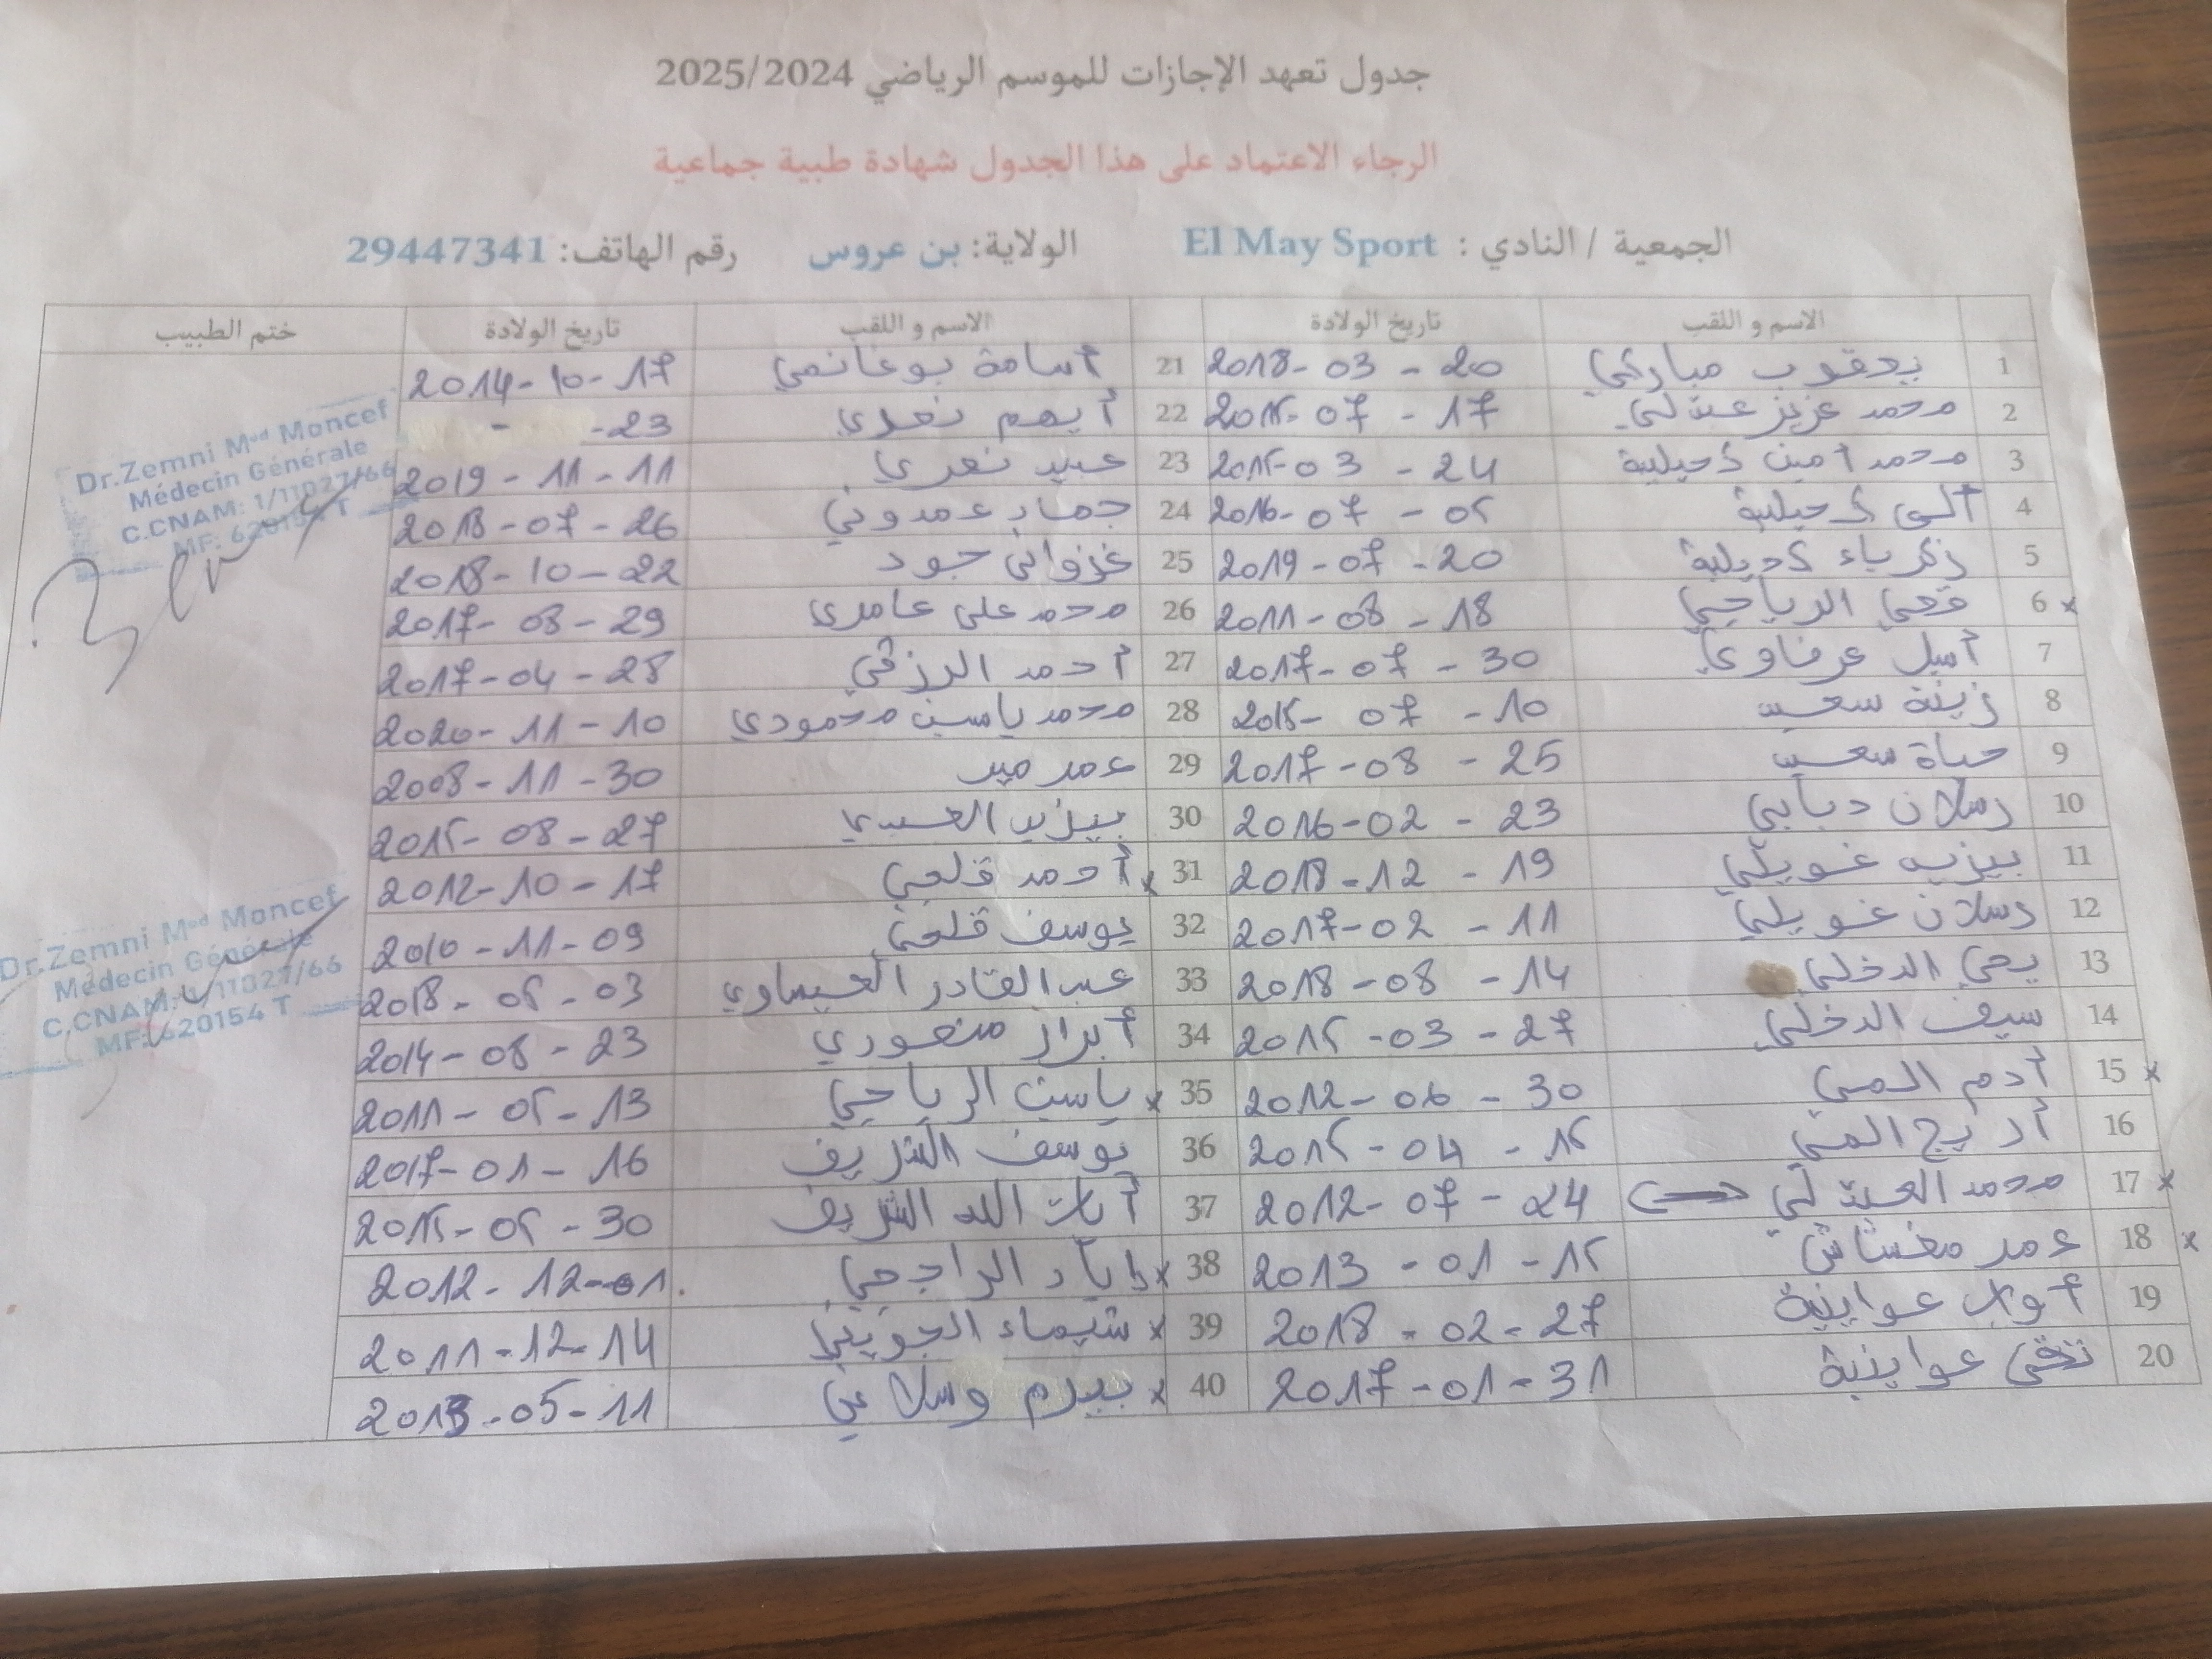 جدول تعهد الإجازات للموسم الرياضي 2025/2024
الرجاء الاعتماد على هذا الجدول شهادة طبية جماعية
الجمعية / النادي : El May Sport الولاية: بن عروس رقم الهاتف: 29447341
الاسم و اللقب تاريخ الولادة الاسم و اللقب تاريخ الولادة ختم الطبيب
1 يعقوب مباركي 20 - 03 - 2018 21 أسامة بوغانمي 17 - 10 - 2014
2 محمد عزيز عبدلي 17 - 07 - 2015 22 أيهم نصري 23 -  -
3 محمد أمين كحيلية 24 - 03 - 2015 23 عبيد نصري 11 - 11 - 2019
4 ألى كحيلية 05 - 07 - 2016 24 جهاد عمدوني 26 - 07 - 2018
5 زكرياء كحيلية 20 - 07 - 2019 25 غزواني جود 22 - 10 - 2018
6 x قصي الرياحي 18 - 08 - 2011 26 محمد علي عامري 29 - 08 - 2017
7 أسيل عرفاوي 30 - 07 - 2017 27 أحمد الرزقي 28 - 04 - 2017
8 زينة سعيد 10 - 07 - 2015 28 محمد ياسين محمودي 10 - 11 - 2020
9 حياة سعيد 25 - 08 - 2017 29 عمر ميد 30 - 11 - 2008
10 رسلان دبابي 23 - 02 - 2016 30 بيزيد العبيدي 27 - 08 - 2015
11 بيزيد غويلي 19 - 12 - 2018 31 x أحمد قلعي 17 - 10 - 2012
12 رسلان غويلي 11 - 02 - 2017 32 يوسف قلعي 09 - 11 - 2010
13 يحي الدخلي 14 - 08 - 2018 33 عبد القادر العيساوي 03 - 05 - 2018
14 سيف الدخلي 27 - 03 - 2015 34 أبرار منصوري 23 - 08 - 2014
15 x أدم المي 30 - 06 - 2012 35 x ياسين الرياحي 13 - 05 - 2011
16 أريج المي 15 - 04 - 2015 36 يوسف الشريف 16 - 01 - 2017
17 x محمد العبدلي 24 - 07 - 2012 37 أيات الله الشريف 30 - 05 - 2015
18 x عمر مغشاش 15 - 01 - 2013 38 x إياد الراجحي 01 - 12 - 2012
19 أواب عواينية 27 - 02 - 2018 39 x شيماء الجويني 14 - 12 - 2011
20 تقى عواينية 31 - 01 - 2017 40 x بيرم وسلاتي 11 - 05 - 2013
Dr.Zemni Med Moncef
Médecin Générale
C.CNAM: 1/11027/66
MF: 620154 T
Dr.Zemni Med Moncef
Médecin Générale
C.CNAM: 1/11027/66
MF: 620154 T